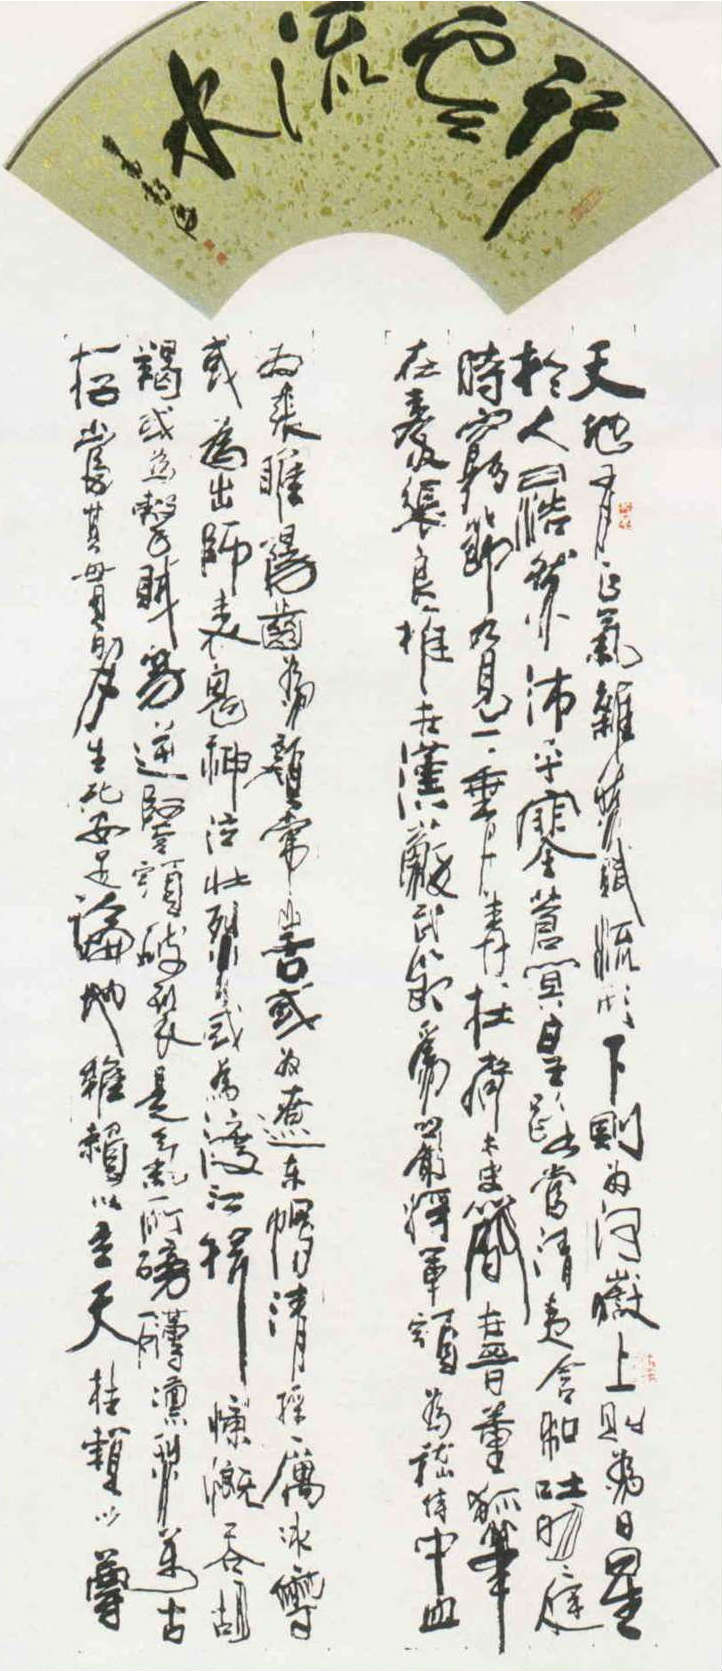 行雲流水
天地有正氣雜然賦流形下則為河嶽上則為日星
於人曰浩然沛乎塞蒼冥皇路當清夷含和吐明庭
時窮節乃見一一垂丹青在齊太史簡在晉董狐筆
在秦張良椎在漢蘇武節為嚴將軍頭為嵇侍中血
為張睢陽齒為顏常山舌或為遼東帽清操厲冰雪
或為出師表鬼神泣壯烈或為渡江楫慷慨吞胡
羯或為擊賊笏逆豎頭破裂是氣所磅礴凜烈萬古
存當其貫日月生死安足論地維賴以立天柱賴以尊